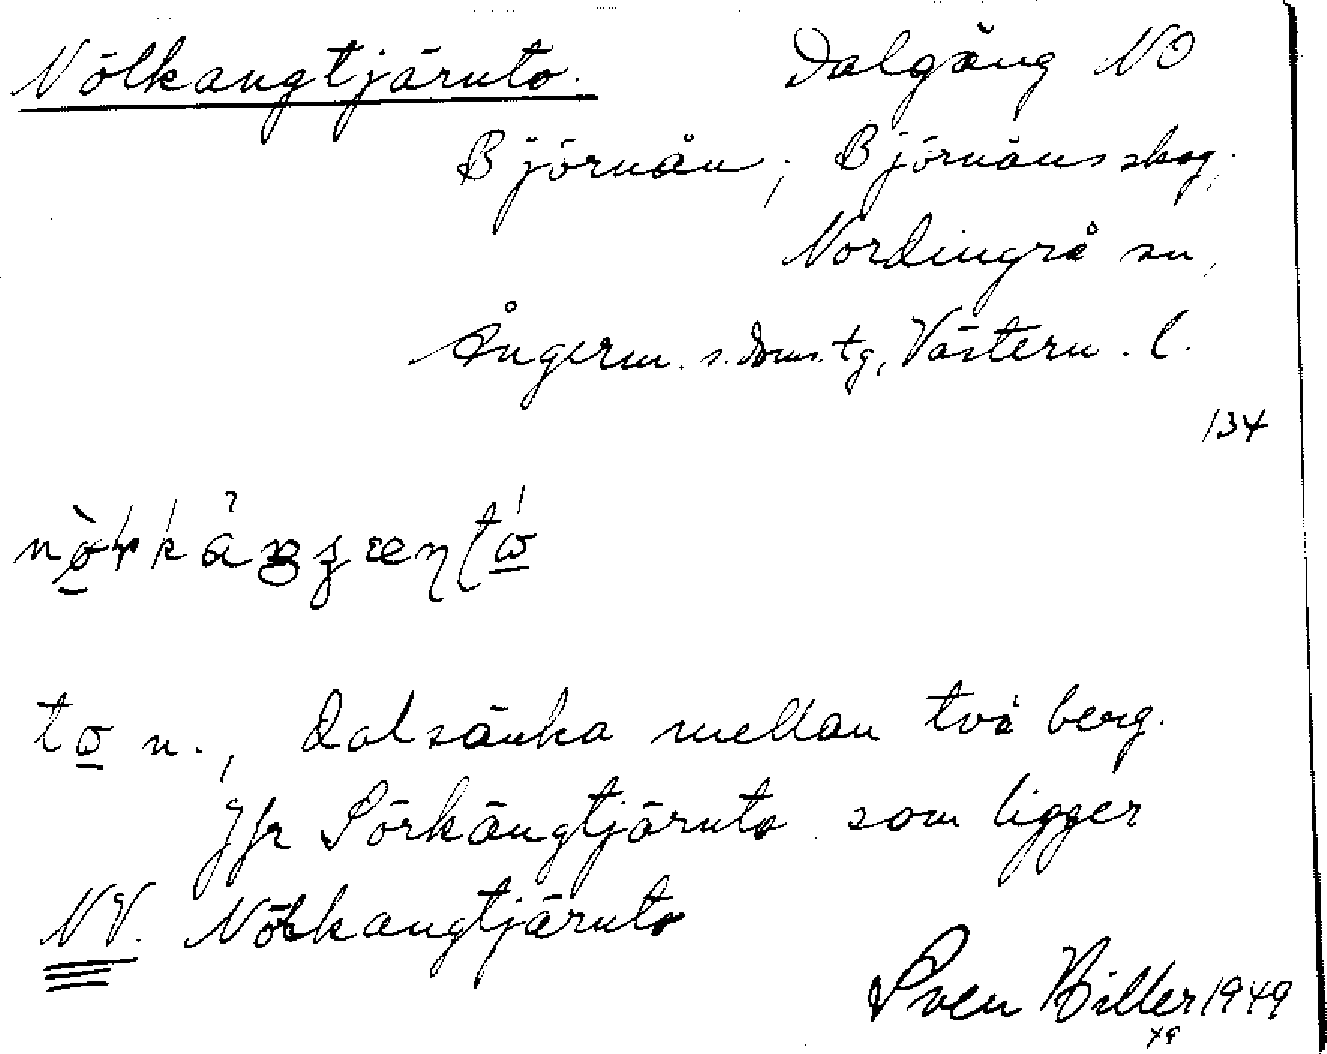 Nölkangtjärnto. Dalgång NO
Björnån; Björnåns skog,
Nordingrå sn,
Ångerm. s. doms. tg, Västern. l.
134
to n., Dalsänka mellan två berg.
Jfr Sörkångtjärnto som ligger
NV. Nölkangtjärnto
Sven Hiller 1949